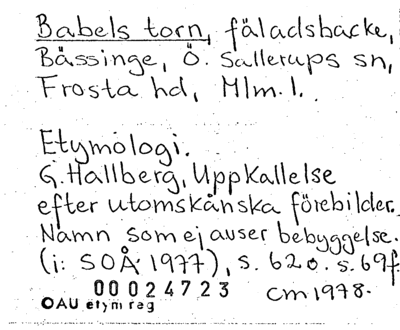 Babels torn, fäladsbacke,
Bässinge, Ö. Sallerups sn,
Frosta hd, Mlm. l.
Etymologi.
G. Hallberg, Uppkallelse
efter utomskånska förebilder.
Namn som ej avser bebyggelse.
(i: SOÅ 1977), s. 62 o. s. 69f.
00024723 CM 1978.
OAU etym reg